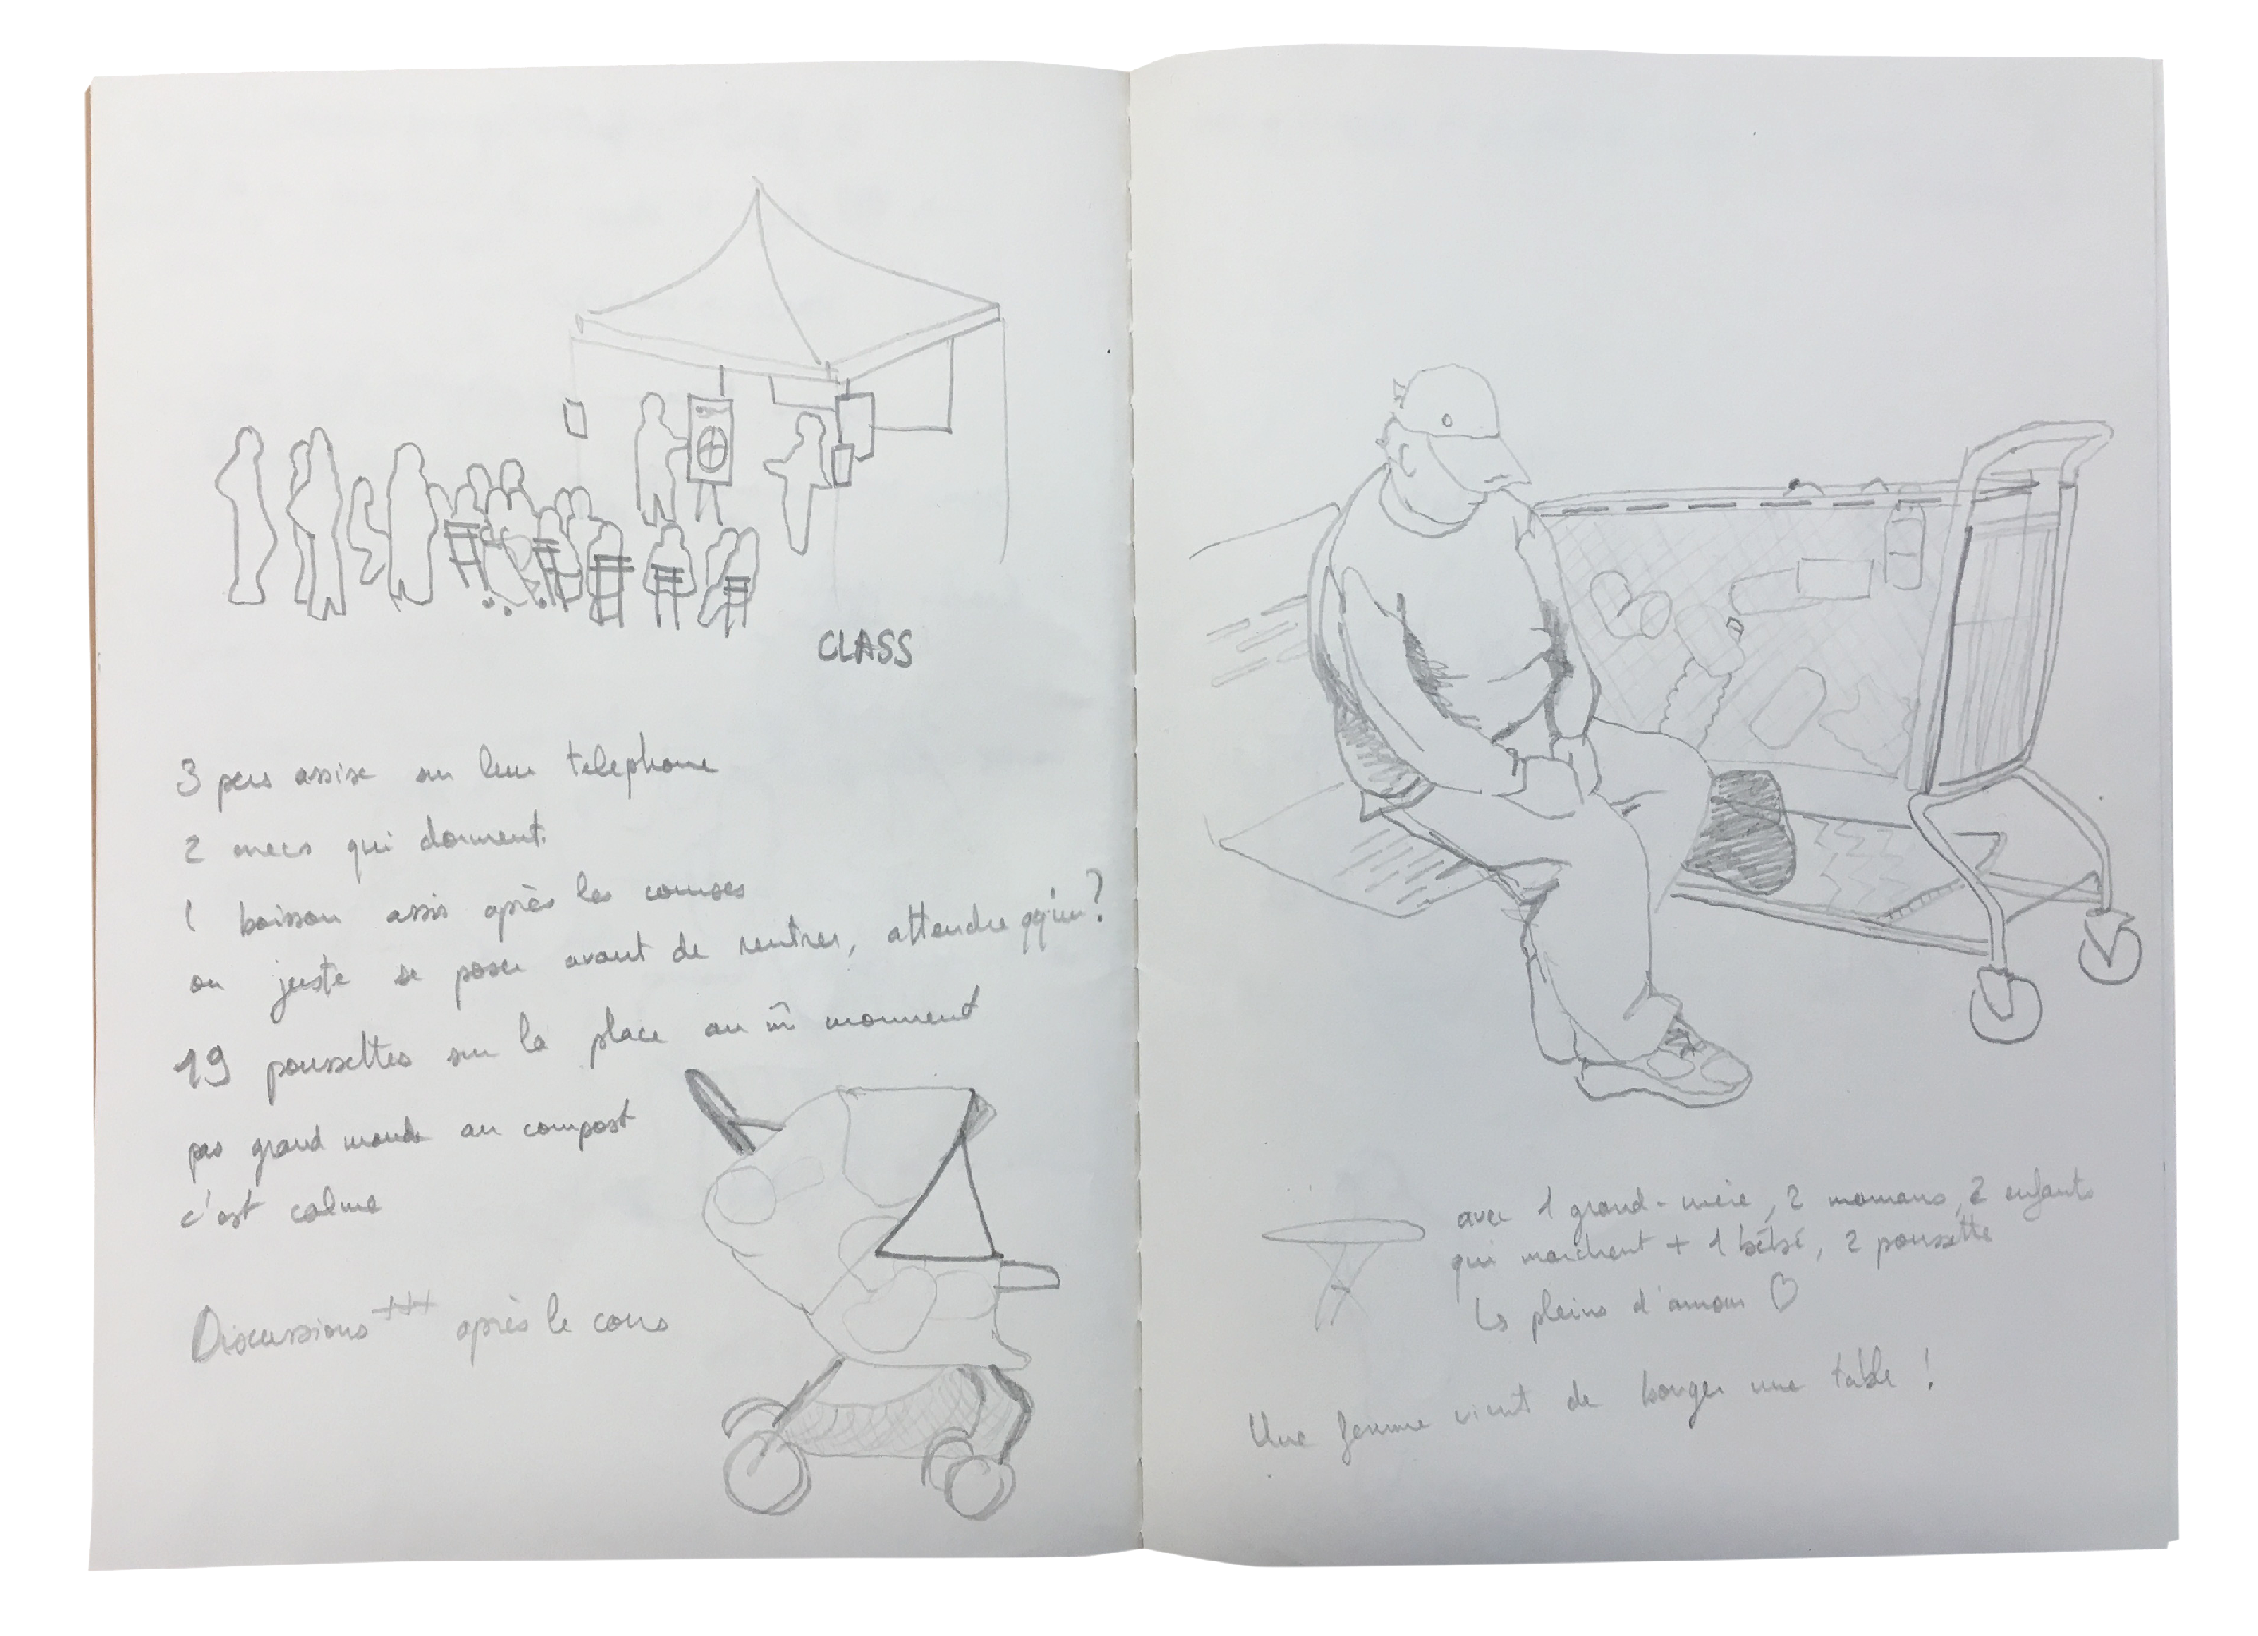 CLASS
3 pers assise sur leur telephone
2 mecs qui dorment.
1 boisson assis après les courses
ou juste se poser avant de rentrer, attendre qq'un ?
19 poussettes sur la place au m̂ moment
pas grand monde au compost
c'est calme
Discussions +++ après le cours
avec 1 grand-mère, 2 mamans, 2 enfants
qui marchent + 1 bébé, 2 poussette
↳ pleins d'amour ♡
Une femme vient de bouger une table !